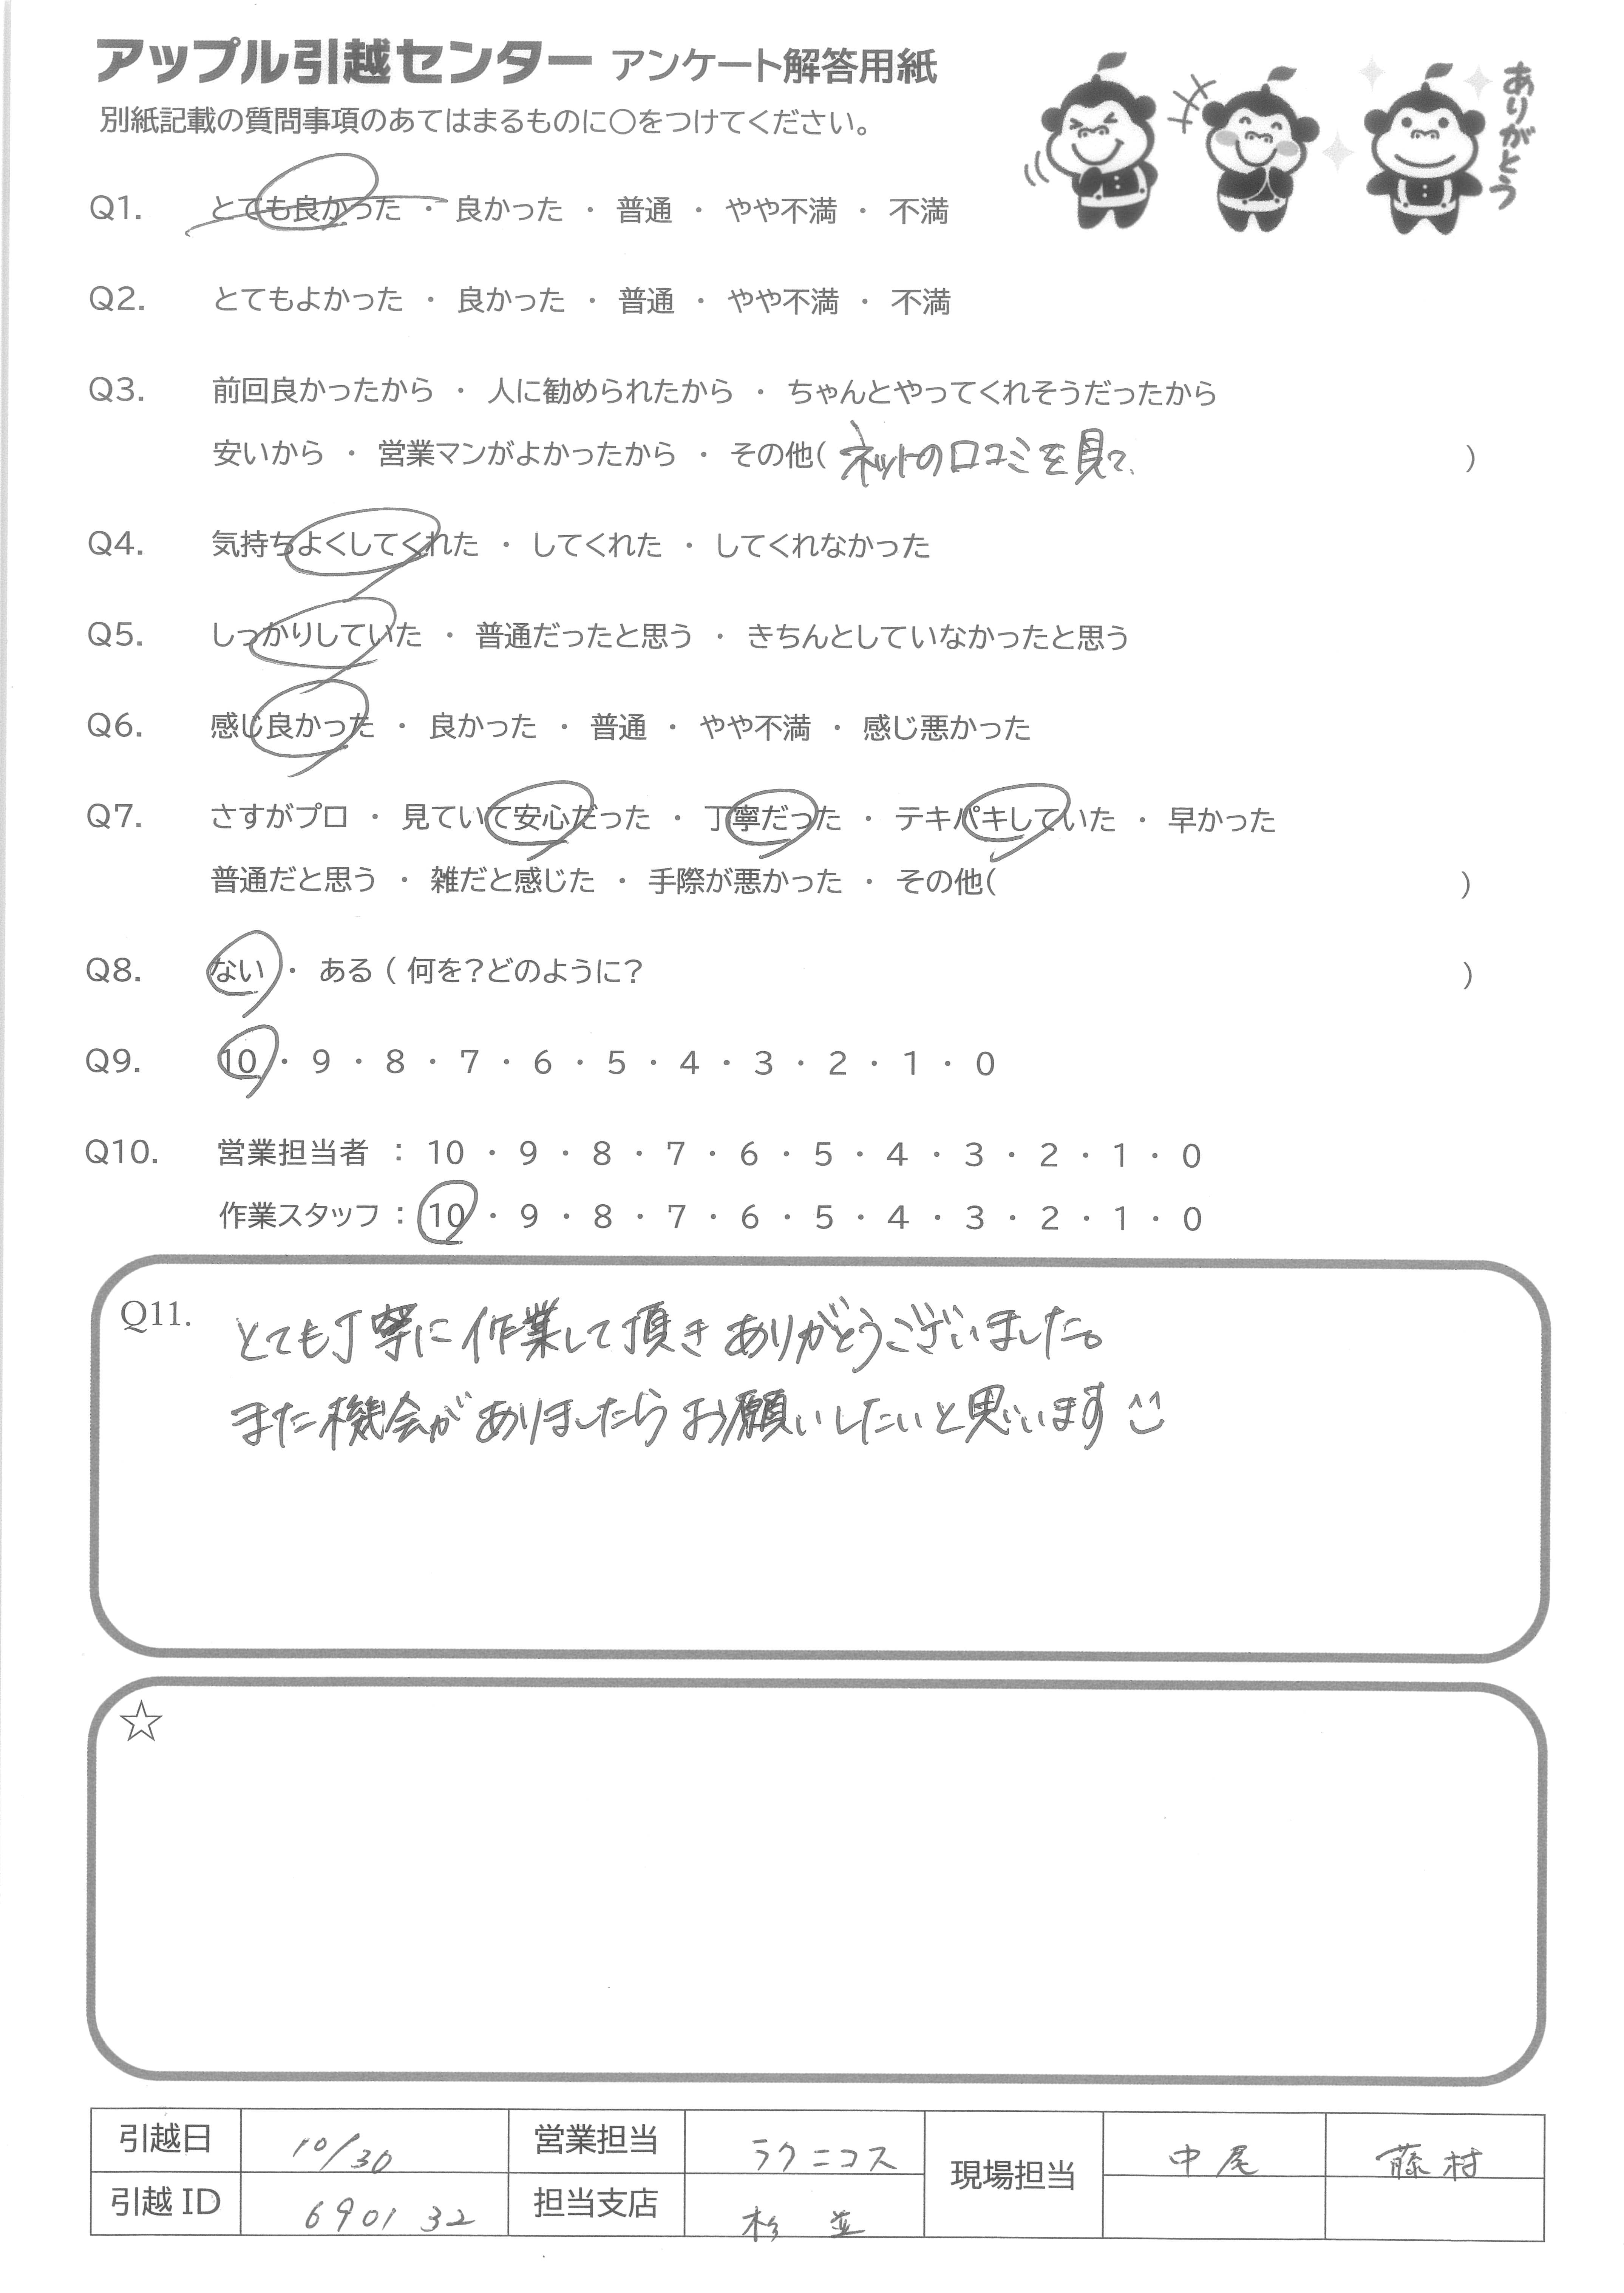 アップル引越センター アンケート解答用紙
ありがとう
別紙記載の質問事項のあてはまるものに○をつけてください。
Q1. とても良かった ・ 良かった ・ 普通 ・ やや不満 ・ 不満
Q2. とてもよかった ・ 良かった ・ 普通 ・ やや不満 ・ 不満
Q3. 前回良かったから ・ 人に勧められたから ・ ちゃんとやってくれそうだったから
安いから ・ 営業マンがよかったから ・ その他( ネットの口コミを見て、 )
Q4. 気持ちよくしてくれた ・ してくれた ・ してくれなかった
Q5. しっかりしていた ・ 普通だったと思う ・ きちんとしていなかったと思う
Q6. 感じ良かった ・ 良かった ・ 普通 ・ やや不満 ・ 感じ悪かった
Q7. さすがプロ ・ 見ていて安心だった ・ 丁寧だった ・ テキパキしていた ・ 早かった
普通だと思う ・ 雑だと感じた ・ 手際が悪かった ・ その他( )
Q8. ない ・ ある ( 何を？どのように？ )
Q9. 10 ・ 9 ・ 8 ・ 7 ・ 6 ・ 5 ・ 4 ・ 3 ・ 2 ・ 1 ・ 0
Q10. 営業担当者 ： 10 ・ 9 ・ 8 ・ 7 ・ 6 ・ 5 ・ 4 ・ 3 ・ 2 ・ 1 ・ 0
作業スタッフ ： 10 ・ 9 ・ 8 ・ 7 ・ 6 ・ 5 ・ 4 ・ 3 ・ 2 ・ 1 ・ 0
Q11. とても丁寧に作業して頂きありがとうございました。
また機会がありましたらお願いしたいと思います
☆
引越日 10/30 営業担当 ラクニコス 現場担当 中尾 藤村
引越ID 690132 担当支店 杉並